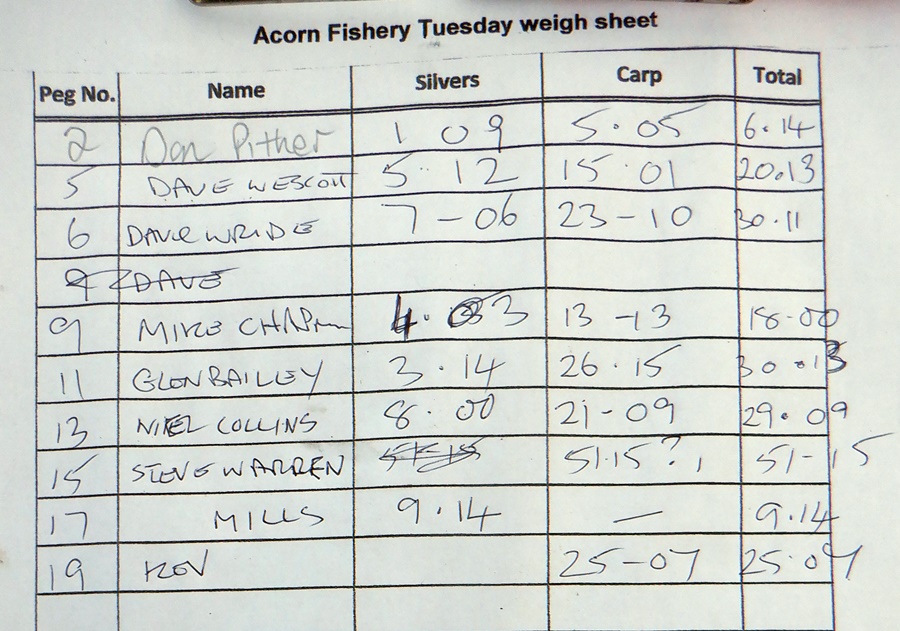 Acorn Fishery Tuesday weigh sheet
Peg No. Name Silvers Carp Total
2 Don Pither 1 09 5.05 6.14
5 DAVE WESCOTT 5.12 15 01 20.13
6 DAVE WRIDE 7-06 23-10 30.11
9 DAVE
9 MIKE CHAPMAN 4.03 13-13 18-00
11 GLEN BAILEY 3.14 26.15 30.13
13 NIGEL COLLINS 8.00 21-09 29.09
15 STEVE WARREN 51.15? 51-15
17 MILLS 9.14 — 9.14
19 KEV 25-07 25.07